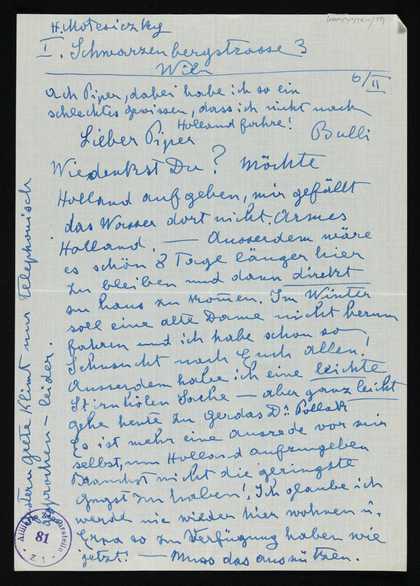 H. Motesiczky
I. Schwarzenbergstrasse 3
Wien
6/II
Ach Piper, dabei habe ich so ein
schlechtes Gewissen, dass ich nicht nach
Holland fahre!
Bulli
Lieber Piper
Wie denkst Du? Möchte
Holland aufgeben, mir gefällt
das Wasser dort nicht. Armes
Holland. — Ausserdem wäre
es schön 8 Tage länger hier
zu bleiben und dann direkt
zu haus zu kommen. Im Winter
soll eine alte Dame nicht herum
fahren und ich habe schon so
Sehnsucht nach Euch allen!
Ausserdem habe ich eine leichte
Stirnhölen Sache — aber ganz leicht
gehe heute zu Gerdas Dr. Pollak
Es ist mehr eine Ausrede vor sir
selbst, um Holland aufzugeben
Brauchst nicht die geringste
Angst zu haben! Ich glaube ich
werde nie wieder hier wohnen u.
so zur Verfügung haben wie
jetzt! — Muss das ausnützen.
Gestern Grete Klimt nur telephonisch
gesprochen — leider.
81